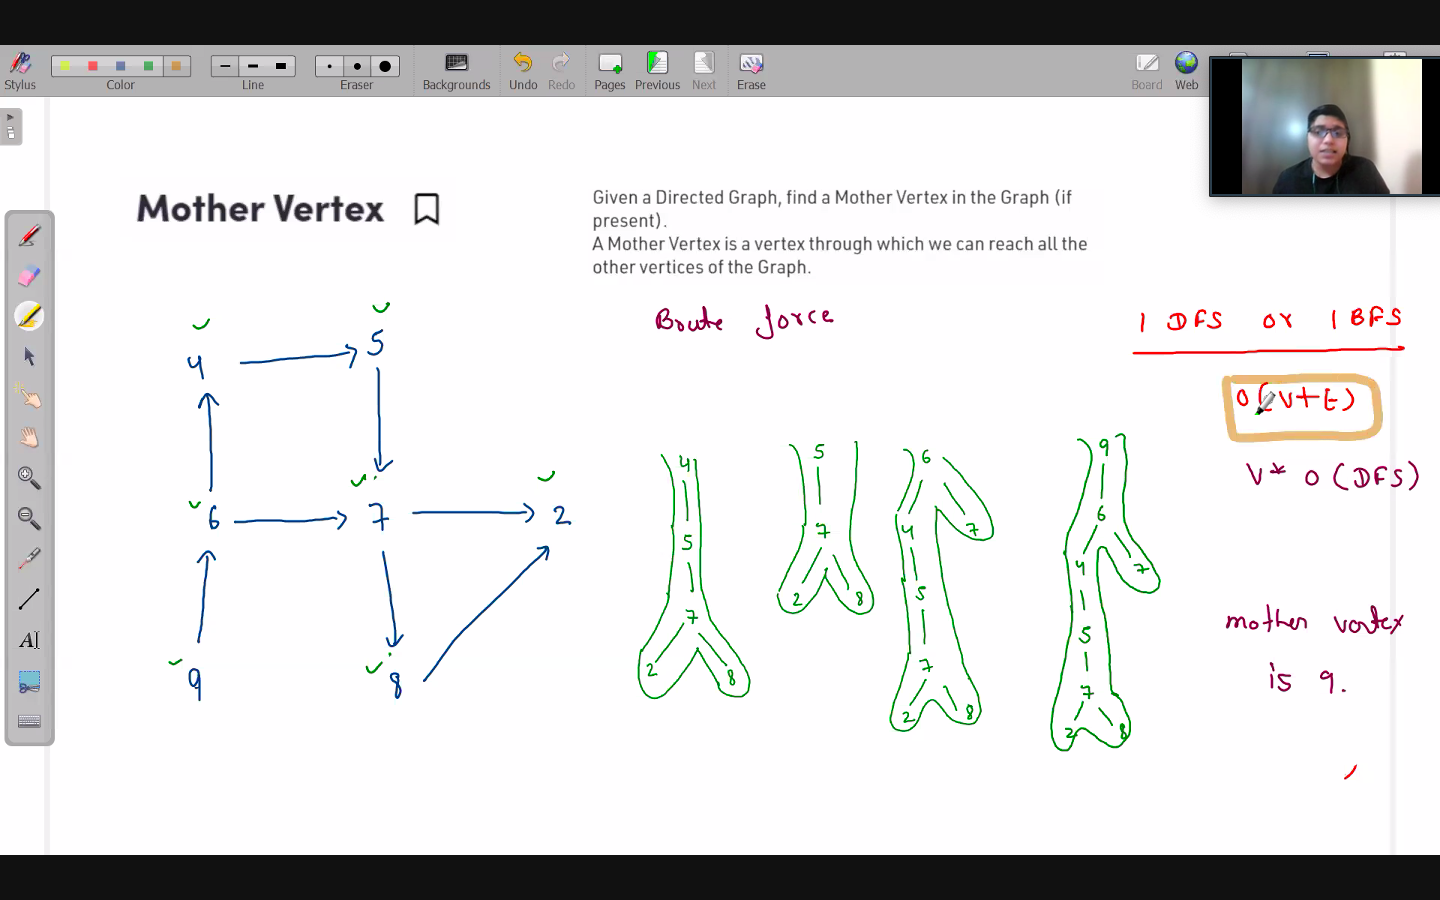 Stylus
Color
Line
Eraser
Backgrounds
Undo
Redo
Pages
Previous
Next
Erase
Board
Web
Mother Vertex
Given a Directed Graph, find a Mother Vertex in the Graph (if
present).
A Mother Vertex is a vertex through which we can reach all the
other vertices of the Graph.
Brute force
1 DFS or 1 BFS
O(V+E)
V* O(DFS)
mother vertex
is 9.
4
5
6
7
2
9
8
4
5
7
2
8
5
7
2
8
6
4
7
5
7
2
8
9
6
4
7
5
7
2
8
A